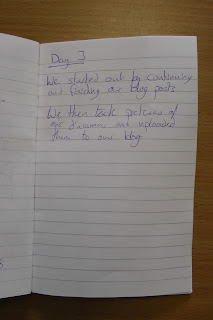 Day 3
We started out by continuing
and finishing our blog posts
We then took pictures of
our diaries and uploaded
them to our blog